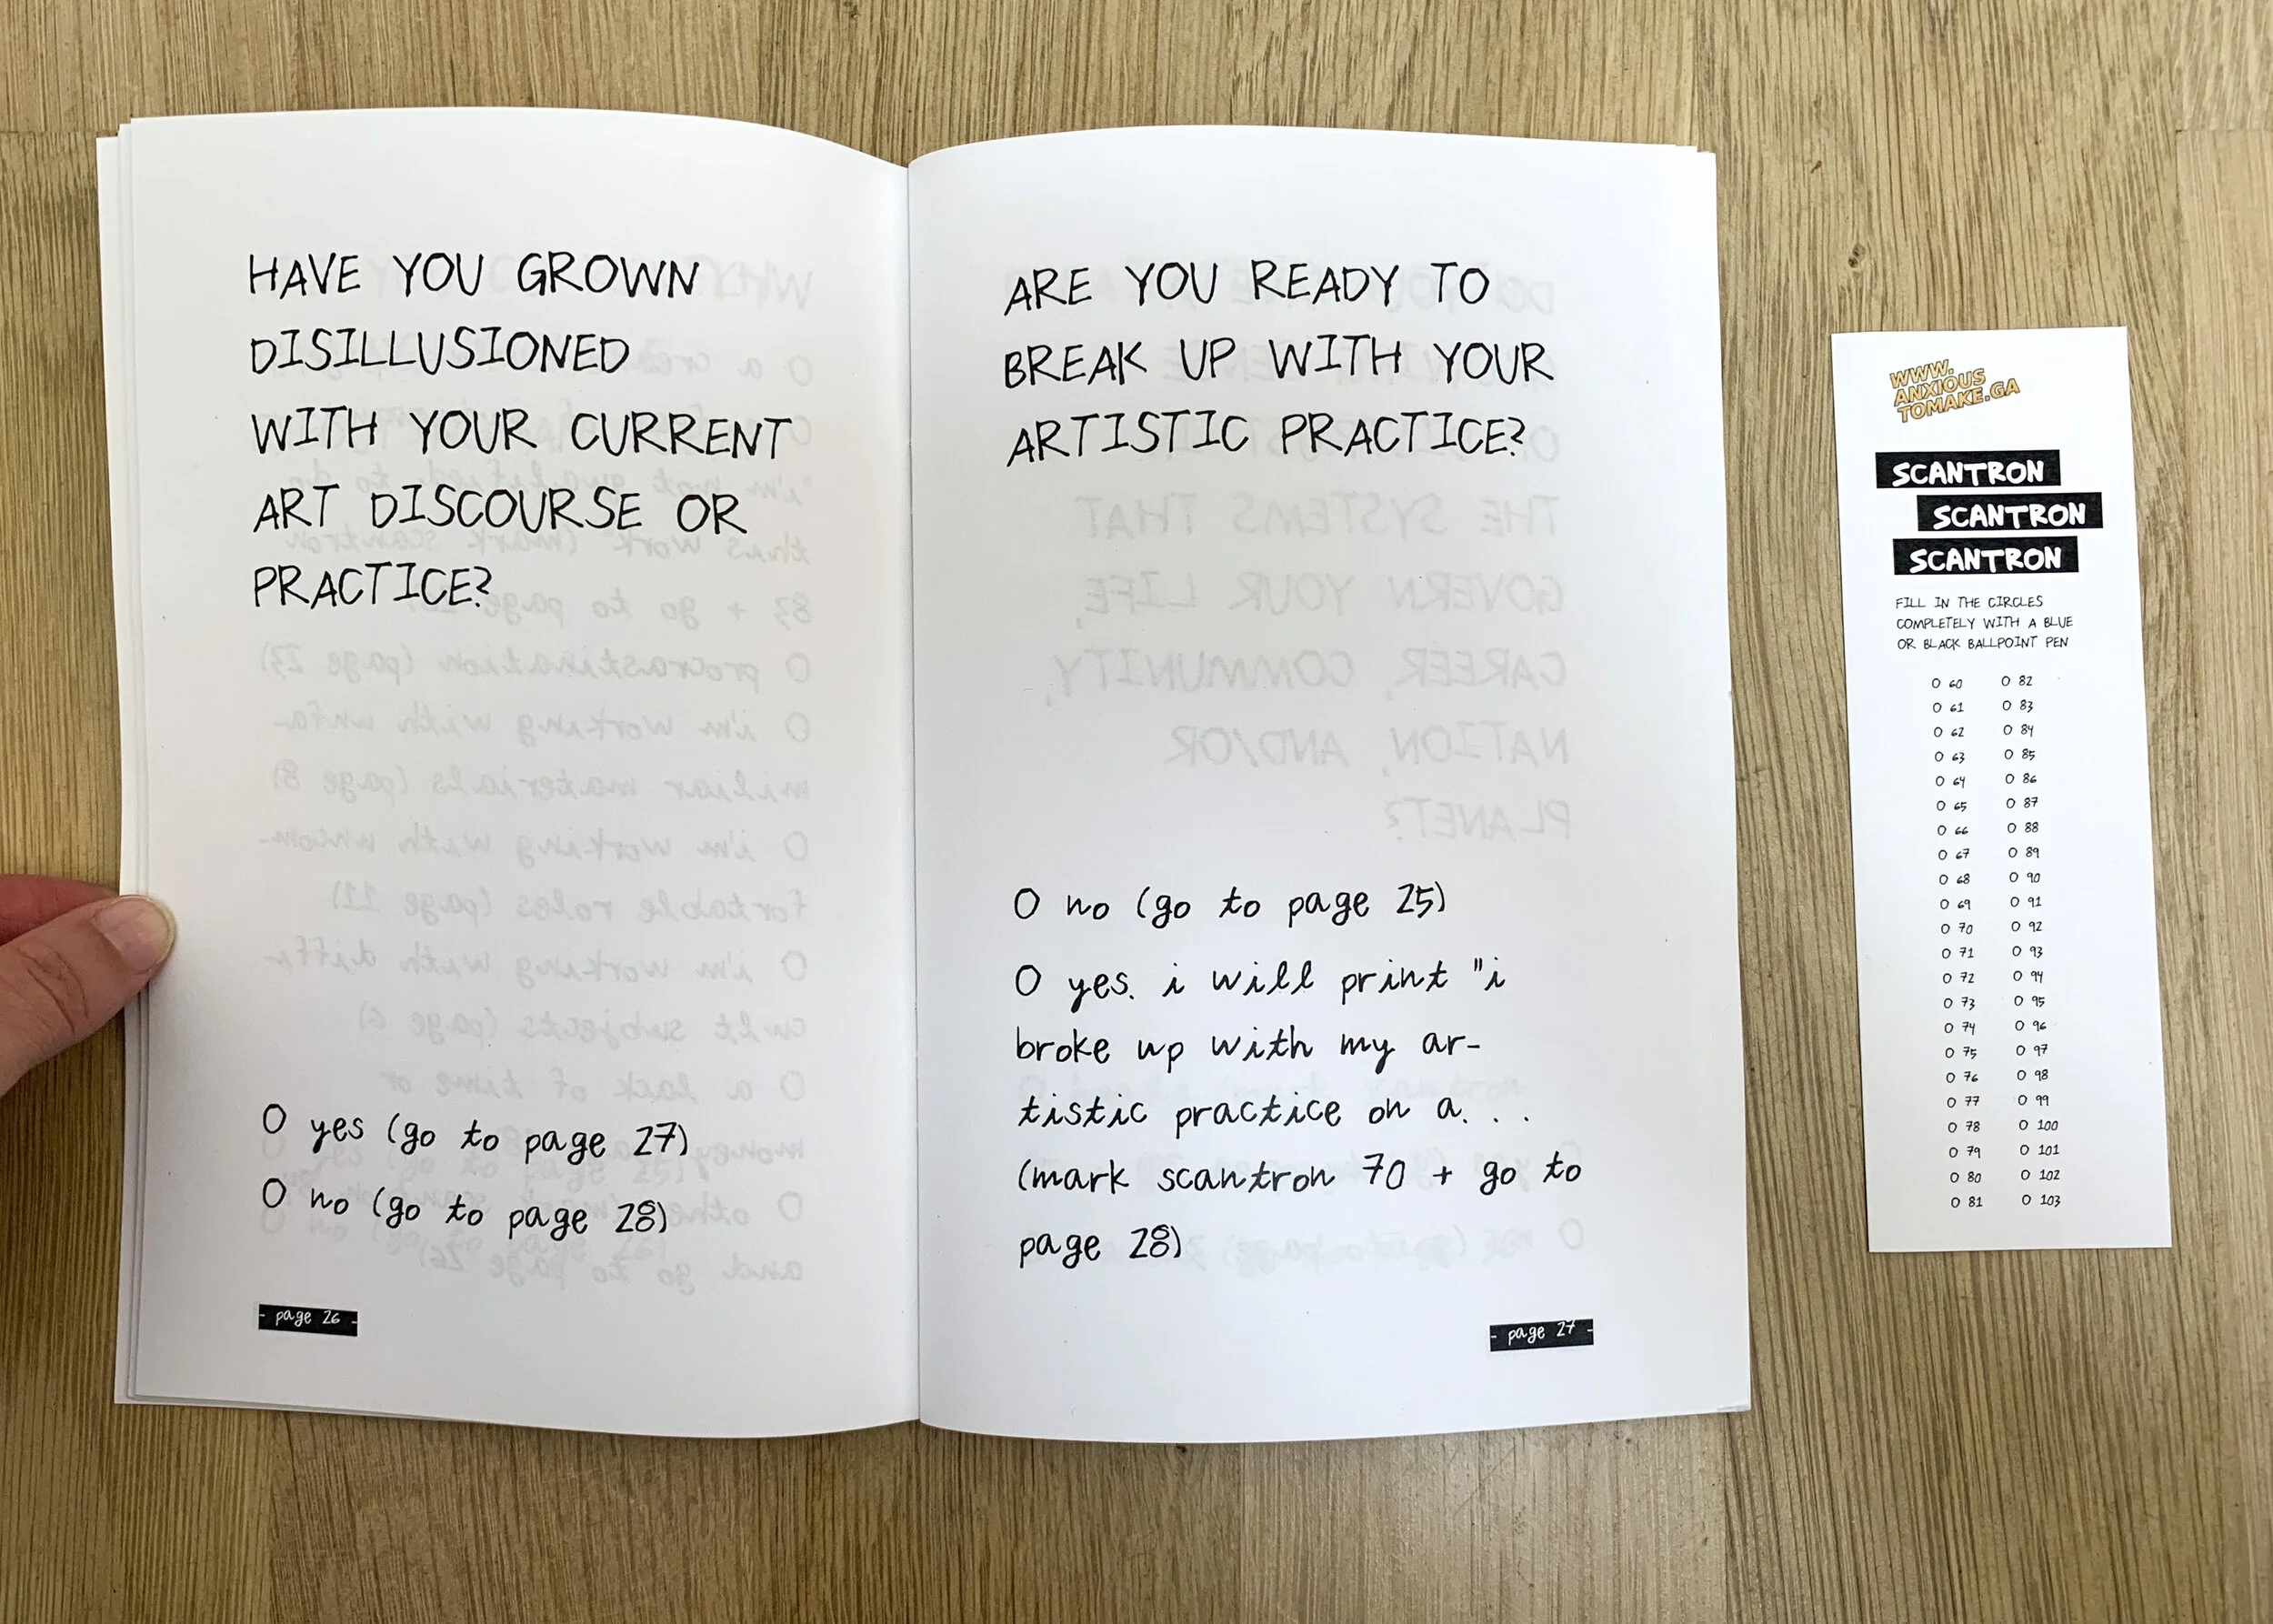 HAVE YOU GROWN
DISILLUSIONED
WITH YOUR CURRENT
ART DISCOURSE OR
PRACTICE?
O yes (go to page 27)
O no (go to page 28)
- page 26 -
ARE YOU READY TO
BREAK UP WITH YOUR
ARTISTIC PRACTICE?
O no (go to page 25)
O yes. i will print "i
broke up with my ar-
tistic practice on a. . .
(mark scantron 70 + go to
page 28)
- page 27 -
WWW.
ANXIOUS
TOMAKE.GA
SCANTRON
SCANTRON
SCANTRON
FILL IN THE CIRCLES
COMPLETELY WITH A BLUE
OR BLACK BALLPOINT PEN
O 60 O 82
O 61 O 83
O 62 O 84
O 63 O 85
O 64 O 86
O 65 O 87
O 66 O 88
O 67 O 89
O 68 O 90
O 69 O 91
O 70 O 92
O 71 O 93
O 72 O 94
O 73 O 95
O 74 O 96
O 75 O 97
O 76 O 98
O 77 O 99
O 78 O 100
O 79 O 101
O 80 O 102
O 81 O 103